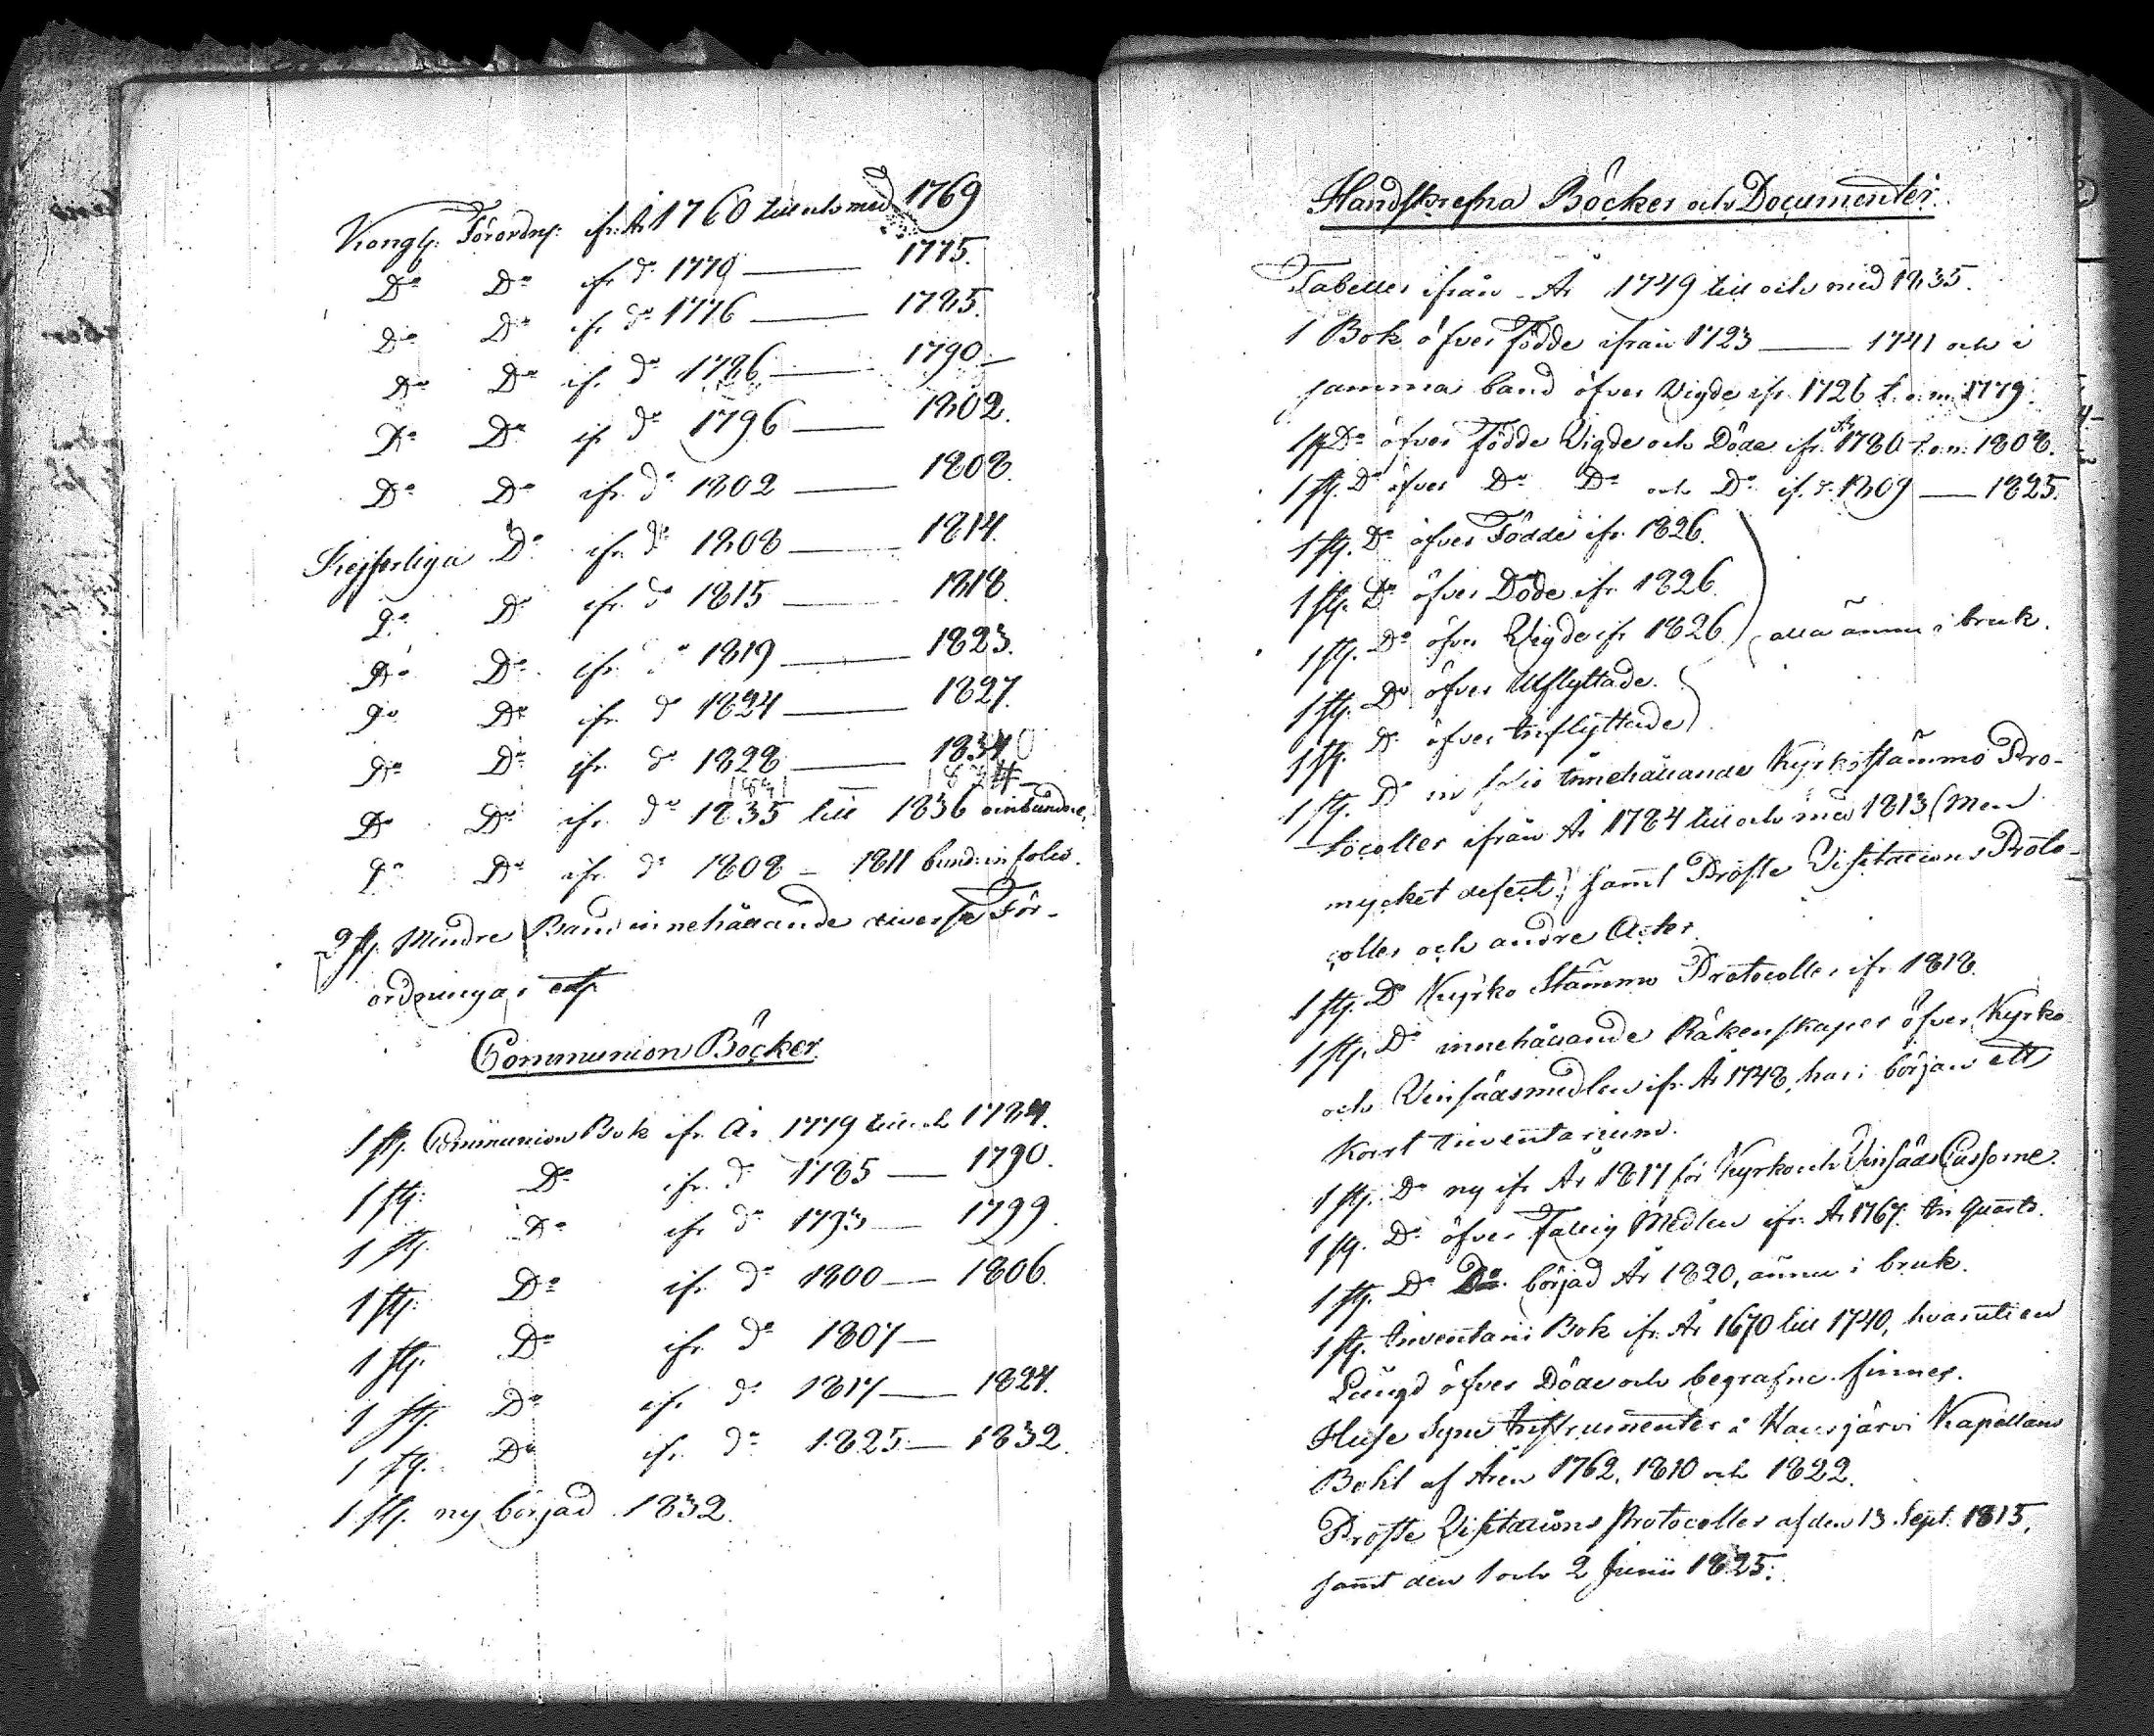 Kongl: Förordn: ifr. År 1760 till och med 1769
Do Do ifr do 1770 — 1775.
Do Do ifr. do 1776 — 1785.
Do Do ifr. do 1786 — 1790 —
Do Do ifr do 1796 — 1802.
Do Do ifr. do 1802 — 1808.
Kejserliga Do ifr. do 1808 — 1814.
Do Do ifr. do 1815 — 1818.
Do Do ifr. do 1819 — 1823.
Do Do ifr. do 1824 — 1827.
Do Do ifr. do 1828 — 1834
Do Do ifr. do 1835 till 1836 oinbundne.
Do Do ifr. do 1808 — 1811 bund: in folio.
2 st. Mindre Band innehållande diverse För-
ordningar
Communion Böcker.
1 st. Communion Bok ifr. År 1779 till och 1784.
1 st. Do ifr. do 1785 — 1790.
1 st. Do ifr do 1793 — 1799.
1 st. Do ifr. do 1800 — 1806.
1 st. Do ifr. do 1807 —
1 st. Do ifr. do 1817 — 1824.
1 st. Do ifr. do 1825 — 1832.
1 st. ny börjad 1832.
Handskrefna Böcker och Documenter.
Tabeller ifrån År 1749 till och med 1835.
1 Bok öfver Födde ifrån 1723 — 1741 och i
samma band öfver Vigde ifr. 1726 t. o. m. 1779.
1 st Do öfver Födde Vigde och Döde ifr. År 1780 t. o. m. 1808.
1 st. Do öfver Do Do och Do if. do 1809 — 1825.
1 st. Do öfver Födde ifr. 1826.
1 st. Do öfver Döde ifr. 1826.
1 st. Do öfver Vigde ifr 1826. alla ännu i bruk.
1 st. Do öfver Utflyttade.
1 st. Do öfver Inflyttade
1 st. Do in folio innehållande Kyrkostämmo Pro-
tocoller ifrån År 1784 till och med 1813 (Men
mycket defect) samt Proste Visitations Proto-
coller och andre Acter.
1 st. Do Kyrko Stämmo Protocoller ifr. 1818.
1 st. Do innehållande Räkenskaper öfver Kyrko
och Vinsädsmedlen ifr. År 1748, har i början ett
kort Inventarium.
1 st. Do ny ifr År 1817 för Kyrko och Vinsäds Cassorne.
1 st. Do öfver Fattig Medlen ifr. År 1767. In quarto.
1 st. Do Do börjad År 1820, ännu i bruk.
1 st. Inventarii Bok ifr. År 1670 till 1740, hvaruti en
Längd öfver Döde och begrafne finnes.
Huse Syne Instrumenter å Hausjärvi Kapellans
Bohl af Åren 1762, 1810 och 1822.
Proste Visitations Protocoller af den 13 Sept. 1815,
samt den 1 och 2 Junii 1825.